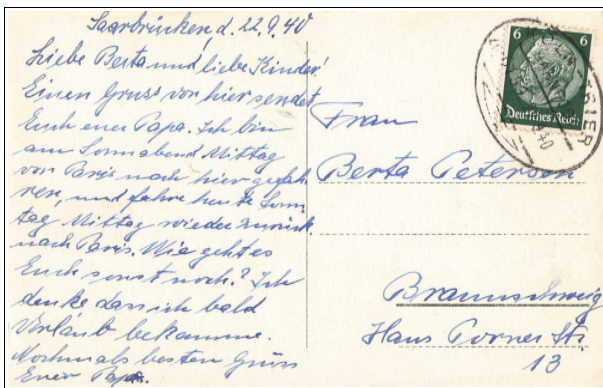 Saarbrücken d. 22.9.40
Liebe Berta und liebe Kinder!
Einen Gruss von hier sendet
Euch euer Papa. Ich bin
am Sonnabend Mittag
von Paris nach hier gefah
ren, und fahre heute Sonn
tag Mittag wieder zurück
nach Paris. Wie geht es
Euch sonst noch? Ich
denke dass ich bald
Urlaub bekomme.
Nochmals besten Gruss
Euer Papa.
6 6
Deutsches Reich
TRIER
Frau
Berta Petersen
Braunschweig
Hans Porner Str.
13